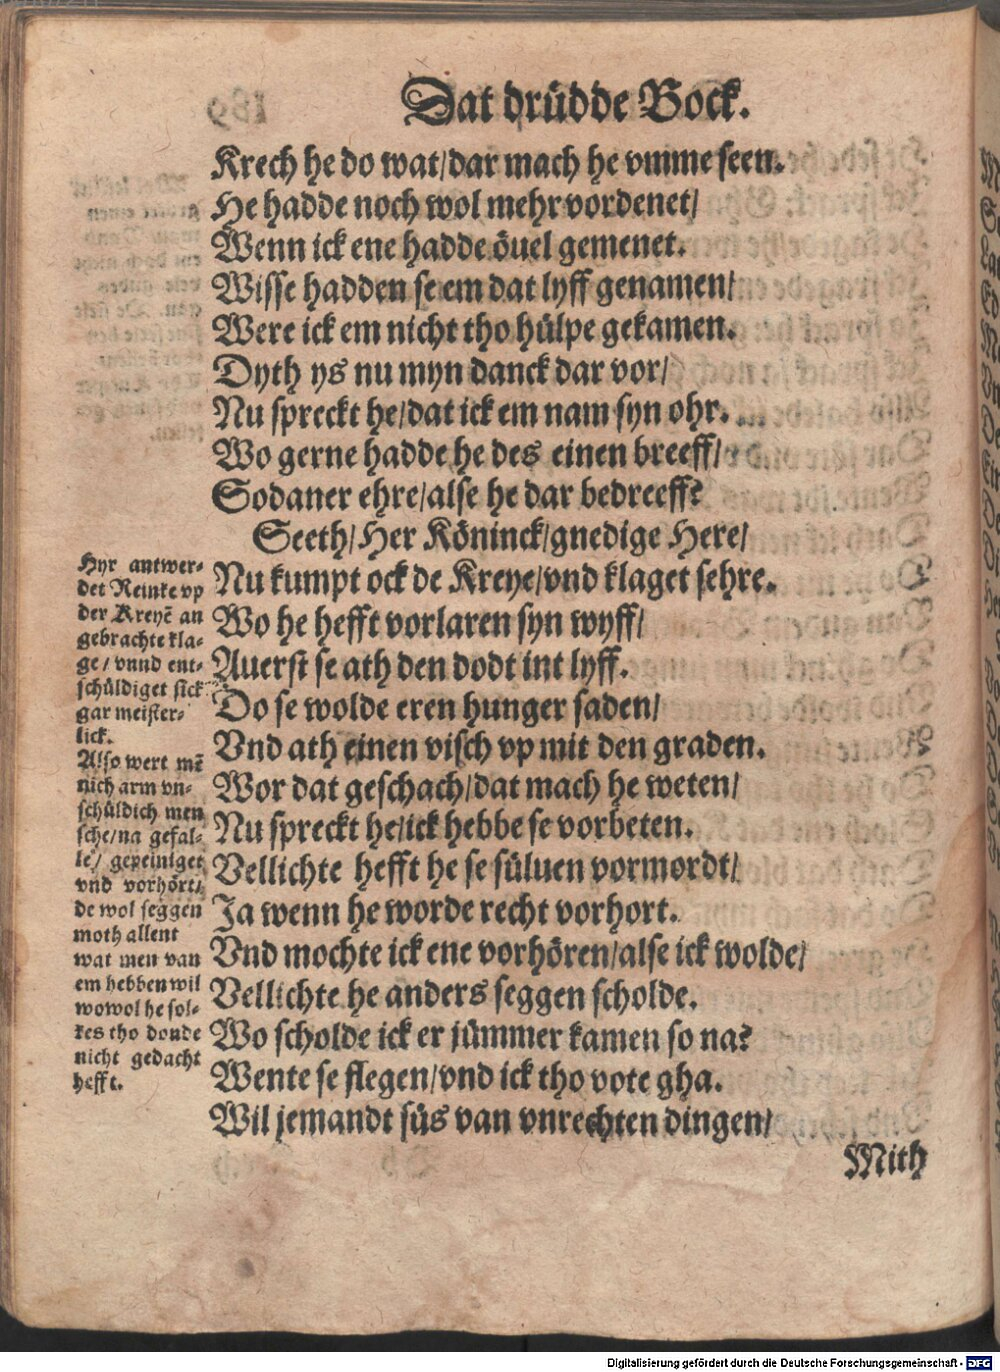 Dat drüdde Bock.
Krech he do wat/dar mach he vmme seen.
He hadde noch wol mehr vordenet/
Wenn ick ene hadde öuel gemenet.
Wisse hadden se em dat lyff genamen/
Were ick em nicht tho hülpe gekamen.
Dyth ys nu myn danck dar vor/
Nu spreckt he/dat ick em nam syn ohr.
Wo gerne hadde he des einen breeff/
Sodaner ehre/alse he dar bedreeff?
Seeth/Her Köninck/gnedige Here/
Nu kumpt ock de Kreye/vnd klaget sehre.
Wo he hefft vorlaren syn wyff/
Auerst se ath den dodt int lyff.
Do se wolde eren hunger saden/
Vnd ath einen visch vp mit den graden.
Wor dat geschach/dat mach he weten/
Nu spreckt he/ick hebbe se vorbeten.
Vellichte hefft he se süluen vormordt/
Ja wenn he worde recht vorhort.
Vnd mochte ick ene vorhören/alse ick wolde/
Vellichte he anders seggen scholde.
Wo scholde ick er jümmer kamen so na?
Wente se flegen/vnd ick tho vote gha.
Wil jemandt süs van vnrechten dingen/
Mith
Hyr antwer-
det Reinke vp
der Kreyē an
gebrachte kla-
ge/vnnd ent-
schüldiget sick
gar meister-
lick.
Also wert mē
nich arm vn-
schüldich men
sche/na gefal-
lē/ gepeiniget
vnd vorhört/
de wol seggen
moth allent
wat men van
em hebben wil
wowol he sol-
kes tho donde
nicht gedacht
hefft.
Digitalisierung gefördert durch die Deutsche Forschungsgemeinschaft - DFG